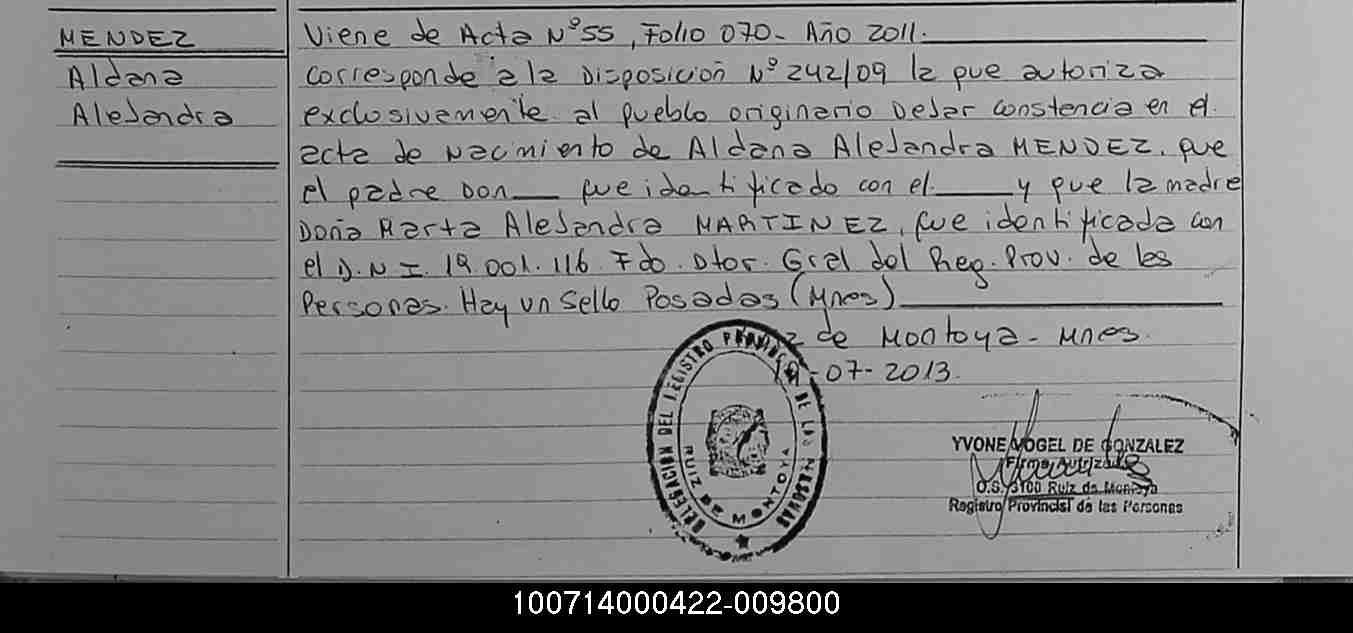 MENDEZ
Aldana
Alejandra
Viene de Acta Nº 55, Folio 070- Año 2011.
corresponde a la Disposición Nº 242/09 la que autoriza
exclusivamente al pueblo originario Dejar constancia en el
acta de Nacimiento de Aldana Alejandra MENDEZ, que
el padre Don___ fue identificado con el.____ y que la madre
Doña Marta Alejandra MARTINEZ, fue identificada con
el D.N.I. 19.001.116. Fdo. Dtor. Gral del Reg. Prov. de las
Personas. Hay un sello Posadas (Mnes)
z de Montoya- Mnes.
19-07-2013.
DELEGACION DEL REGISTRO PROVINC DE LAS PERSONAS
RUIZ DE MONTOYA
YVONE VOGEL DE GONZALEZ
Firma Autorizada
O.S. 3100 Ruiz de Montoya
Registro Provincial de las Personas
100714000422-009800